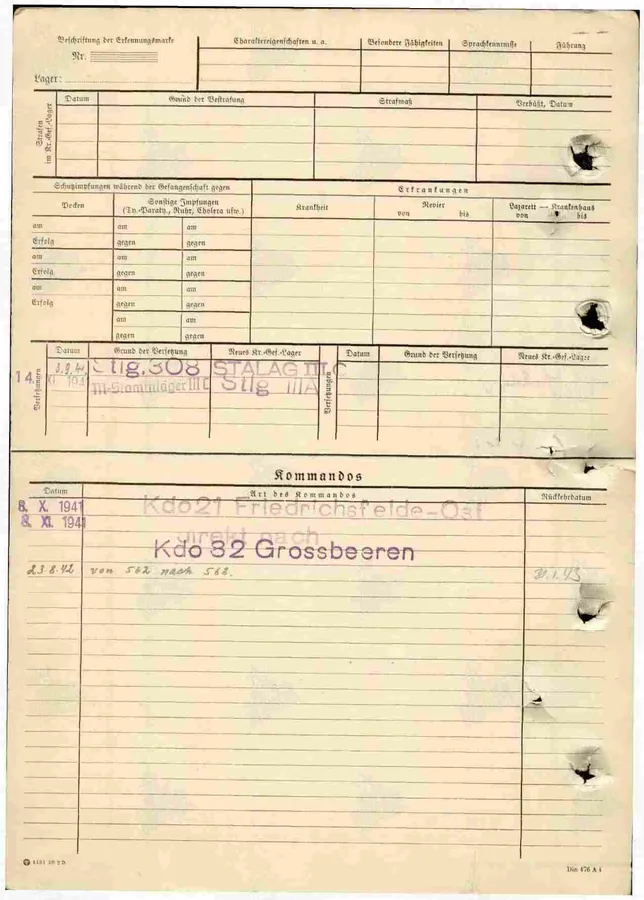 Beschriftung der Erkennungsmarke
Nr.
Lager:
Charaktereigenschaften u. a.
Besondere Fähigkeiten
Sprachkenntnisse
Führung
Strafen im Kr.-Gef.-Lager
Datum
Grund der Bestrafung
Strafmaß
Verbüßt, Datum
Schutzimpfungen während der Gefangenschaft gegen
Erkrankungen
Pocken
Sonstige Impfungen
(Ty.-Paraty., Ruhr, Cholera usw.)
Krankheit
Revier
von bis
Lazarett — Krankenhaus
von bis
am am am
Erfolg gegen gegen
am am am
Erfolg gegen gegen
am am am
Erfolg gegen gegen
am am
gegen gegen
Versetzungen
Datum
Grund der Versetzung
Neues Kr.-Gef.-Lager
Versetzungen
Datum
Grund der Versetzung
Neues Kr.-Gef.-Lager
Stlg. 308 STALAG III C
14. XI. Stammlager III C Stlg III A
Kommandos
Datum
Art des Kommandos
Rückkehrdatum
8. X. 1941 Kdo 21 Friedrichsfelde-Ost
8. XI. 1941 direkt nach
Kdo 32 Grossbeeren
23.8.42 von 562 nach 563. 31.1.43
Din 476 A 4